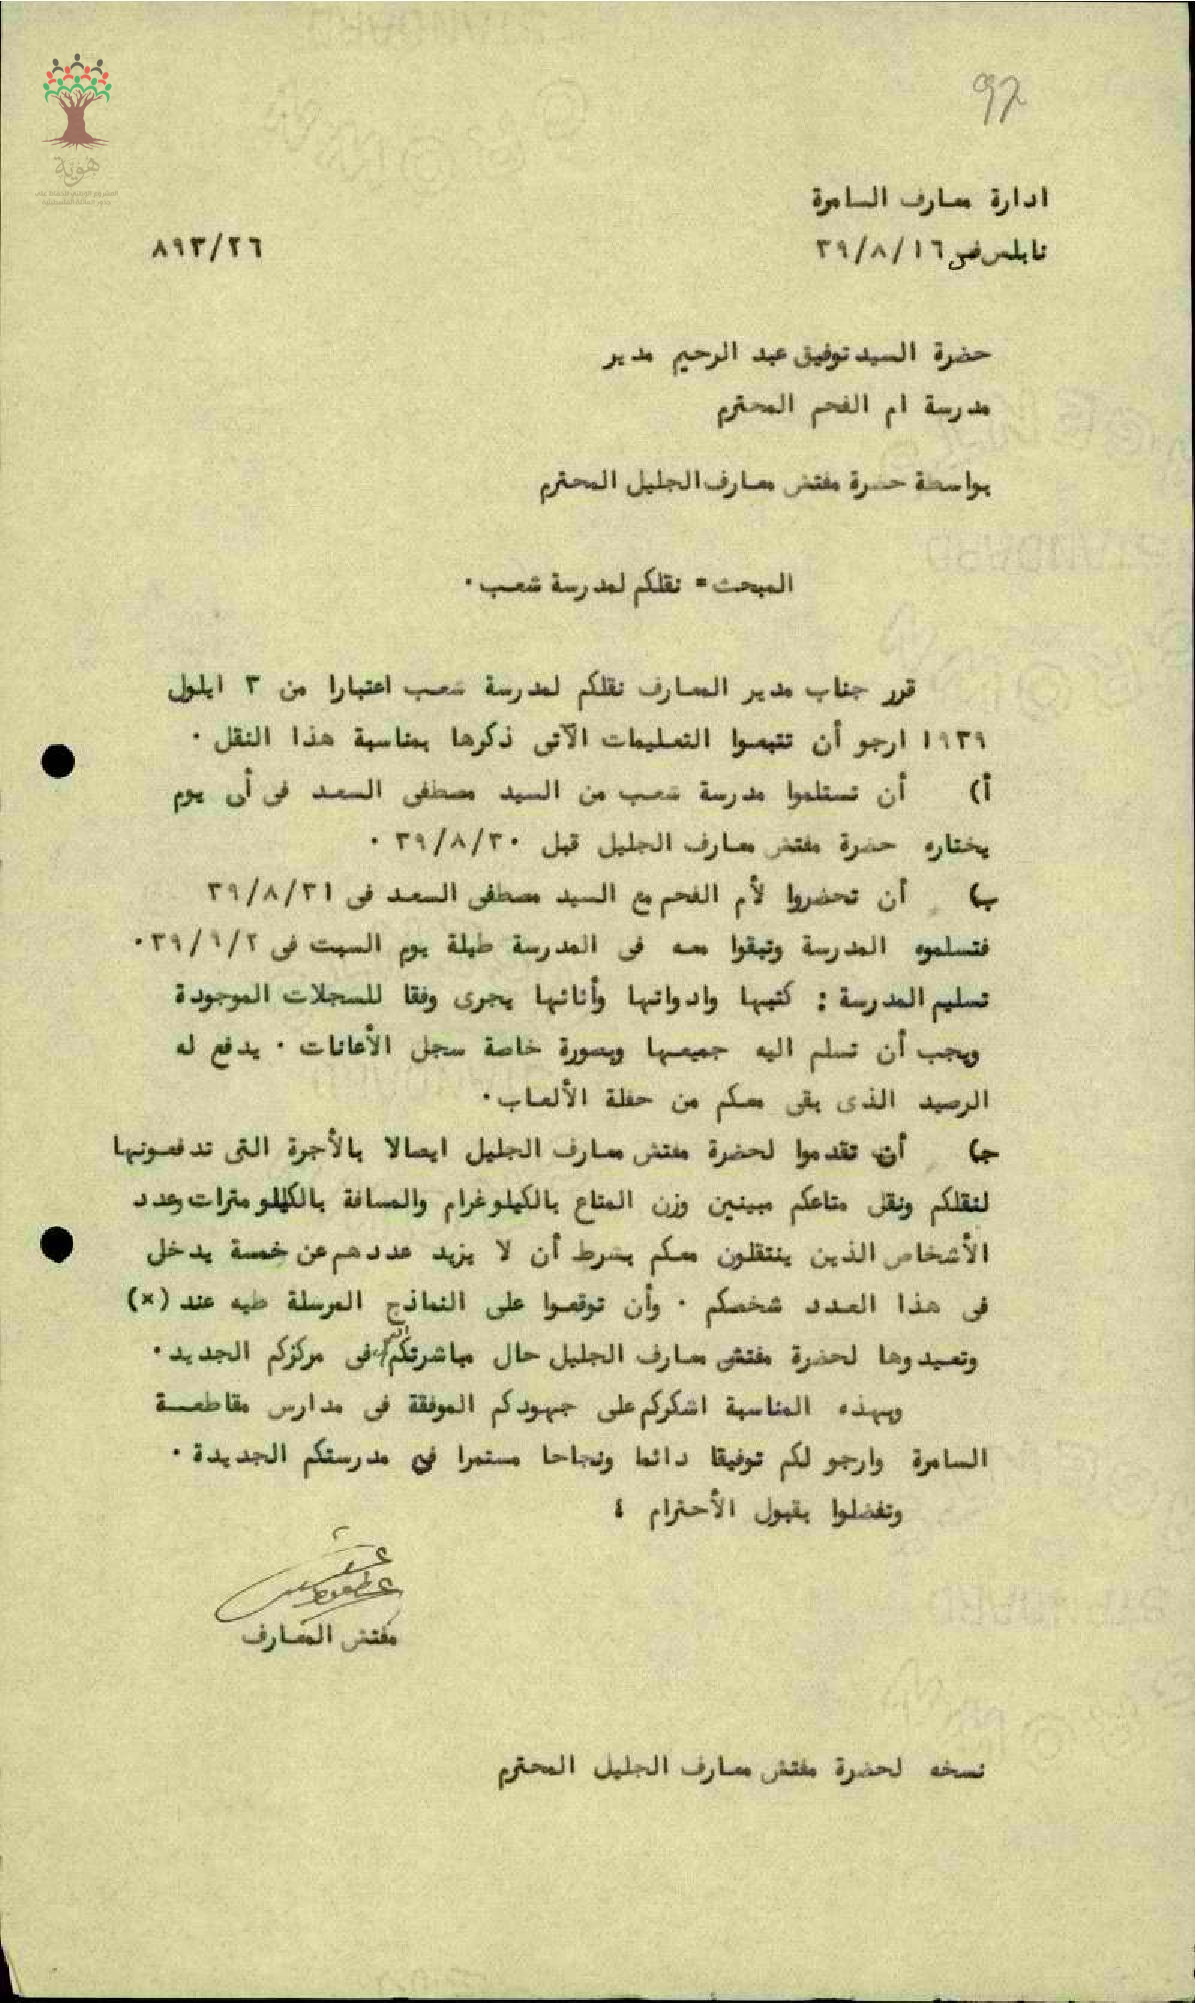 97
هوية
ادارة معارف السامرة
نابلس في ٣٩/٨/١٦
٨٩٣/٢٦
حضرة السيد توفيق عبد الرحيم مدير
مدرسة ام الفحم المحترم
بواسطة حضرة مفتش معارف الجليل المحترم
المبحث = نقلكم لمدرسة شعب ٠
قرر جناب مدير المعارف نقلكم لمدرسة شعب اعتبارا من ٣ ايلول
١٩٣٩ ارجو أن تتبعوا التعليمات الآتى ذكرها بمناسبة هذا النقل ٠
أ) أن تستلموا مدرسة شعب من السيد مصطفى السعد فى أى يوم
يختاره حضرة مفتش معارف الجليل قبل ٣٩/٨/٣٠ ٠
ب) أن تحضروا لأم الفحم مع السيد مصطفى السعد فى ٣٩/٨/٣١
فتسلموه المدرسة وتبقوا معه فى المدرسة طيلة يوم السبت فى ٣٩/٩/٢ ٠
تسليم المدرسة : كتبها وادواتها وأثاثها يجرى وفقا للسجلات الموجودة
ويجب أن تسلم اليه جميعها وبصورة خاصة سجل الأعانات ٠ يدفع له
الرصيد الذى بقى معكم من حفلة الألعاب ٠
جـ) أن تقدموا لحضرة مفتش معارف الجليل ايصالا بالأجرة التى تدفعونها
لنقلكم ونقل متاعكم مبينين وزن المتاع بالكيلوغرام والمسافة بالكيلو مترات وعدد
الأشخاص الذين ينتقلون معكم بشرط أن لا يزيد عددهم عن خمسة يدخل
فى هذا العدد شخصكم ٠ وأن توقعوا على النماذج المرسلة طيه عند (×)
وتعيدوها لحضرة مفتش معارف الجليل حال مباشرتكم فى مركزكم الجديد ٠
وبهذه المناسبة اشكركم على جهودكم الموفقة فى مدارس مقاطعـــة
السامرة وارجو لكم توفيقا دائما ونجاحا مستمرا في مدرستكم الجديدة ٠
وتفضلوا بقبول الأحترام ؛
مفتش المعارف
نسخه لحضرة مفتش معارف الجليل المحترم